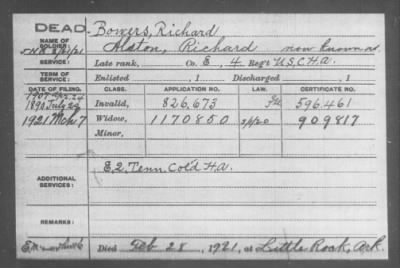 DEAD. Bowers, Richard
NAME OF SOLDIER: Alston, Richard now known as
SERVICE: Late rank, Co. E, 4 Reg't U.S.C.H.A.
TERM OF SERVICE: Enlisted , 1 Discharged , 1
DATE OF FILING. CLASS. APPLICATION NO. LAW. CERTIFICATE NO.
1890 July 29 Invalid, 826,673 596,461
1921 Mch 7 Widow, 1170850 5/1/20 909817
Minor,
ADDITIONAL SERVICES: E, 2, Tenn. Col'd H.A.
REMARKS:
Died Feb 28, 1921, at Little Rock, Ark.